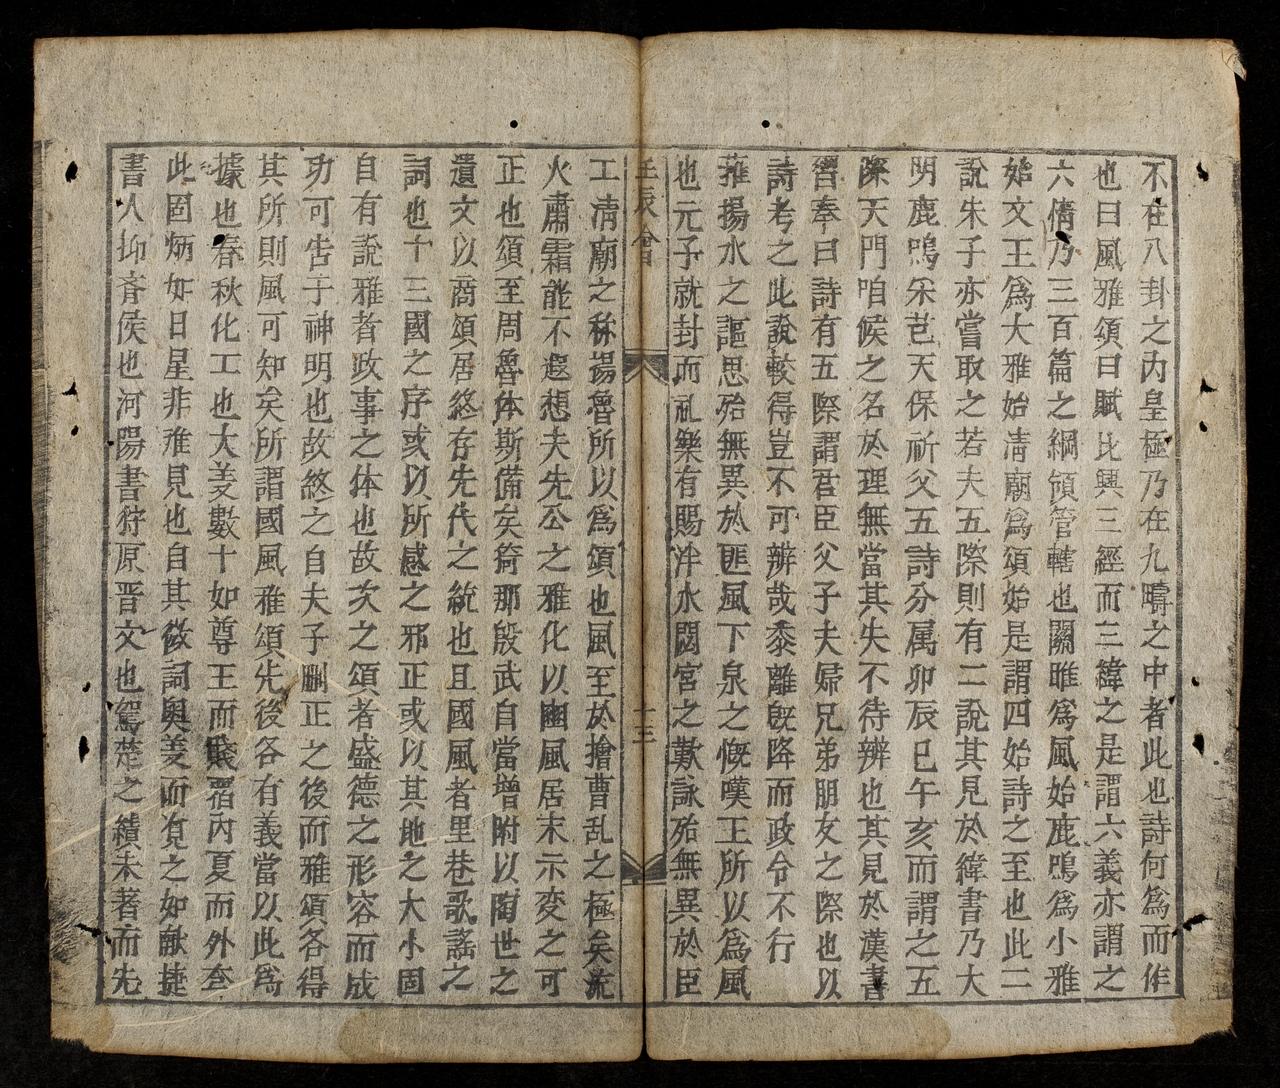 不在八卦之內皇極乃在九疇之中者此也詩何爲而作
也曰風雅頌曰賦比興三經而三緯之是謂六義亦謂之
六情乃三百篇之綱領管轄也關雎爲風始鹿鳴爲小雅
始文王爲大雅始淸廟爲頌始是謂四始詩之至也此二
說朱子亦嘗取之若夫五際則有二說其見於緯書乃大
明鹿鳴采芑天保祈父五詩分属卯辰巳午亥而謂之五
際天門咱候之名於理無當其失不待辨也其見於漢書
晉奉曰詩有五際謂君臣父子夫婦兄弟朋友之際也以
詩考之此說較得豈不可辨哉黍離旣降而政令不行
蕥揚水之謳思殆無異於匪風下泉之慨嘆王所以爲風
也元子就封而礼樂有賜泮水閟宮之歎詠殆無異於臣
壬辰會 十三
工淸廟之稱揚魯所以爲頌也風至於擔曹乱之極矣流
火肅霜能不遐想夫先公之雅化以豳風居末示变之可
正也頌至周魯体斯備矣猗那殷武自當增附以陶世之
遺文以商頌居終存先代之統也且國風者里巷歌謠之
詞也十三國之序或以所感之邪正或以其地之大小固
自有說雅者政事之体也故次之頌者盛德之形容而成
功可告于神明也故終之自夫子删正之後而雅頌各得
其所則風可知矣所謂國風雅頌先後各有義當以此爲
據也春秋化工也大義數十如尊王而賤覇內夏而外夷
此固炳如日星非难見也自其微詞奧義而究之如献捷
書人抑斉侯也河陽書狩原晋文也爲楚之績未著而先